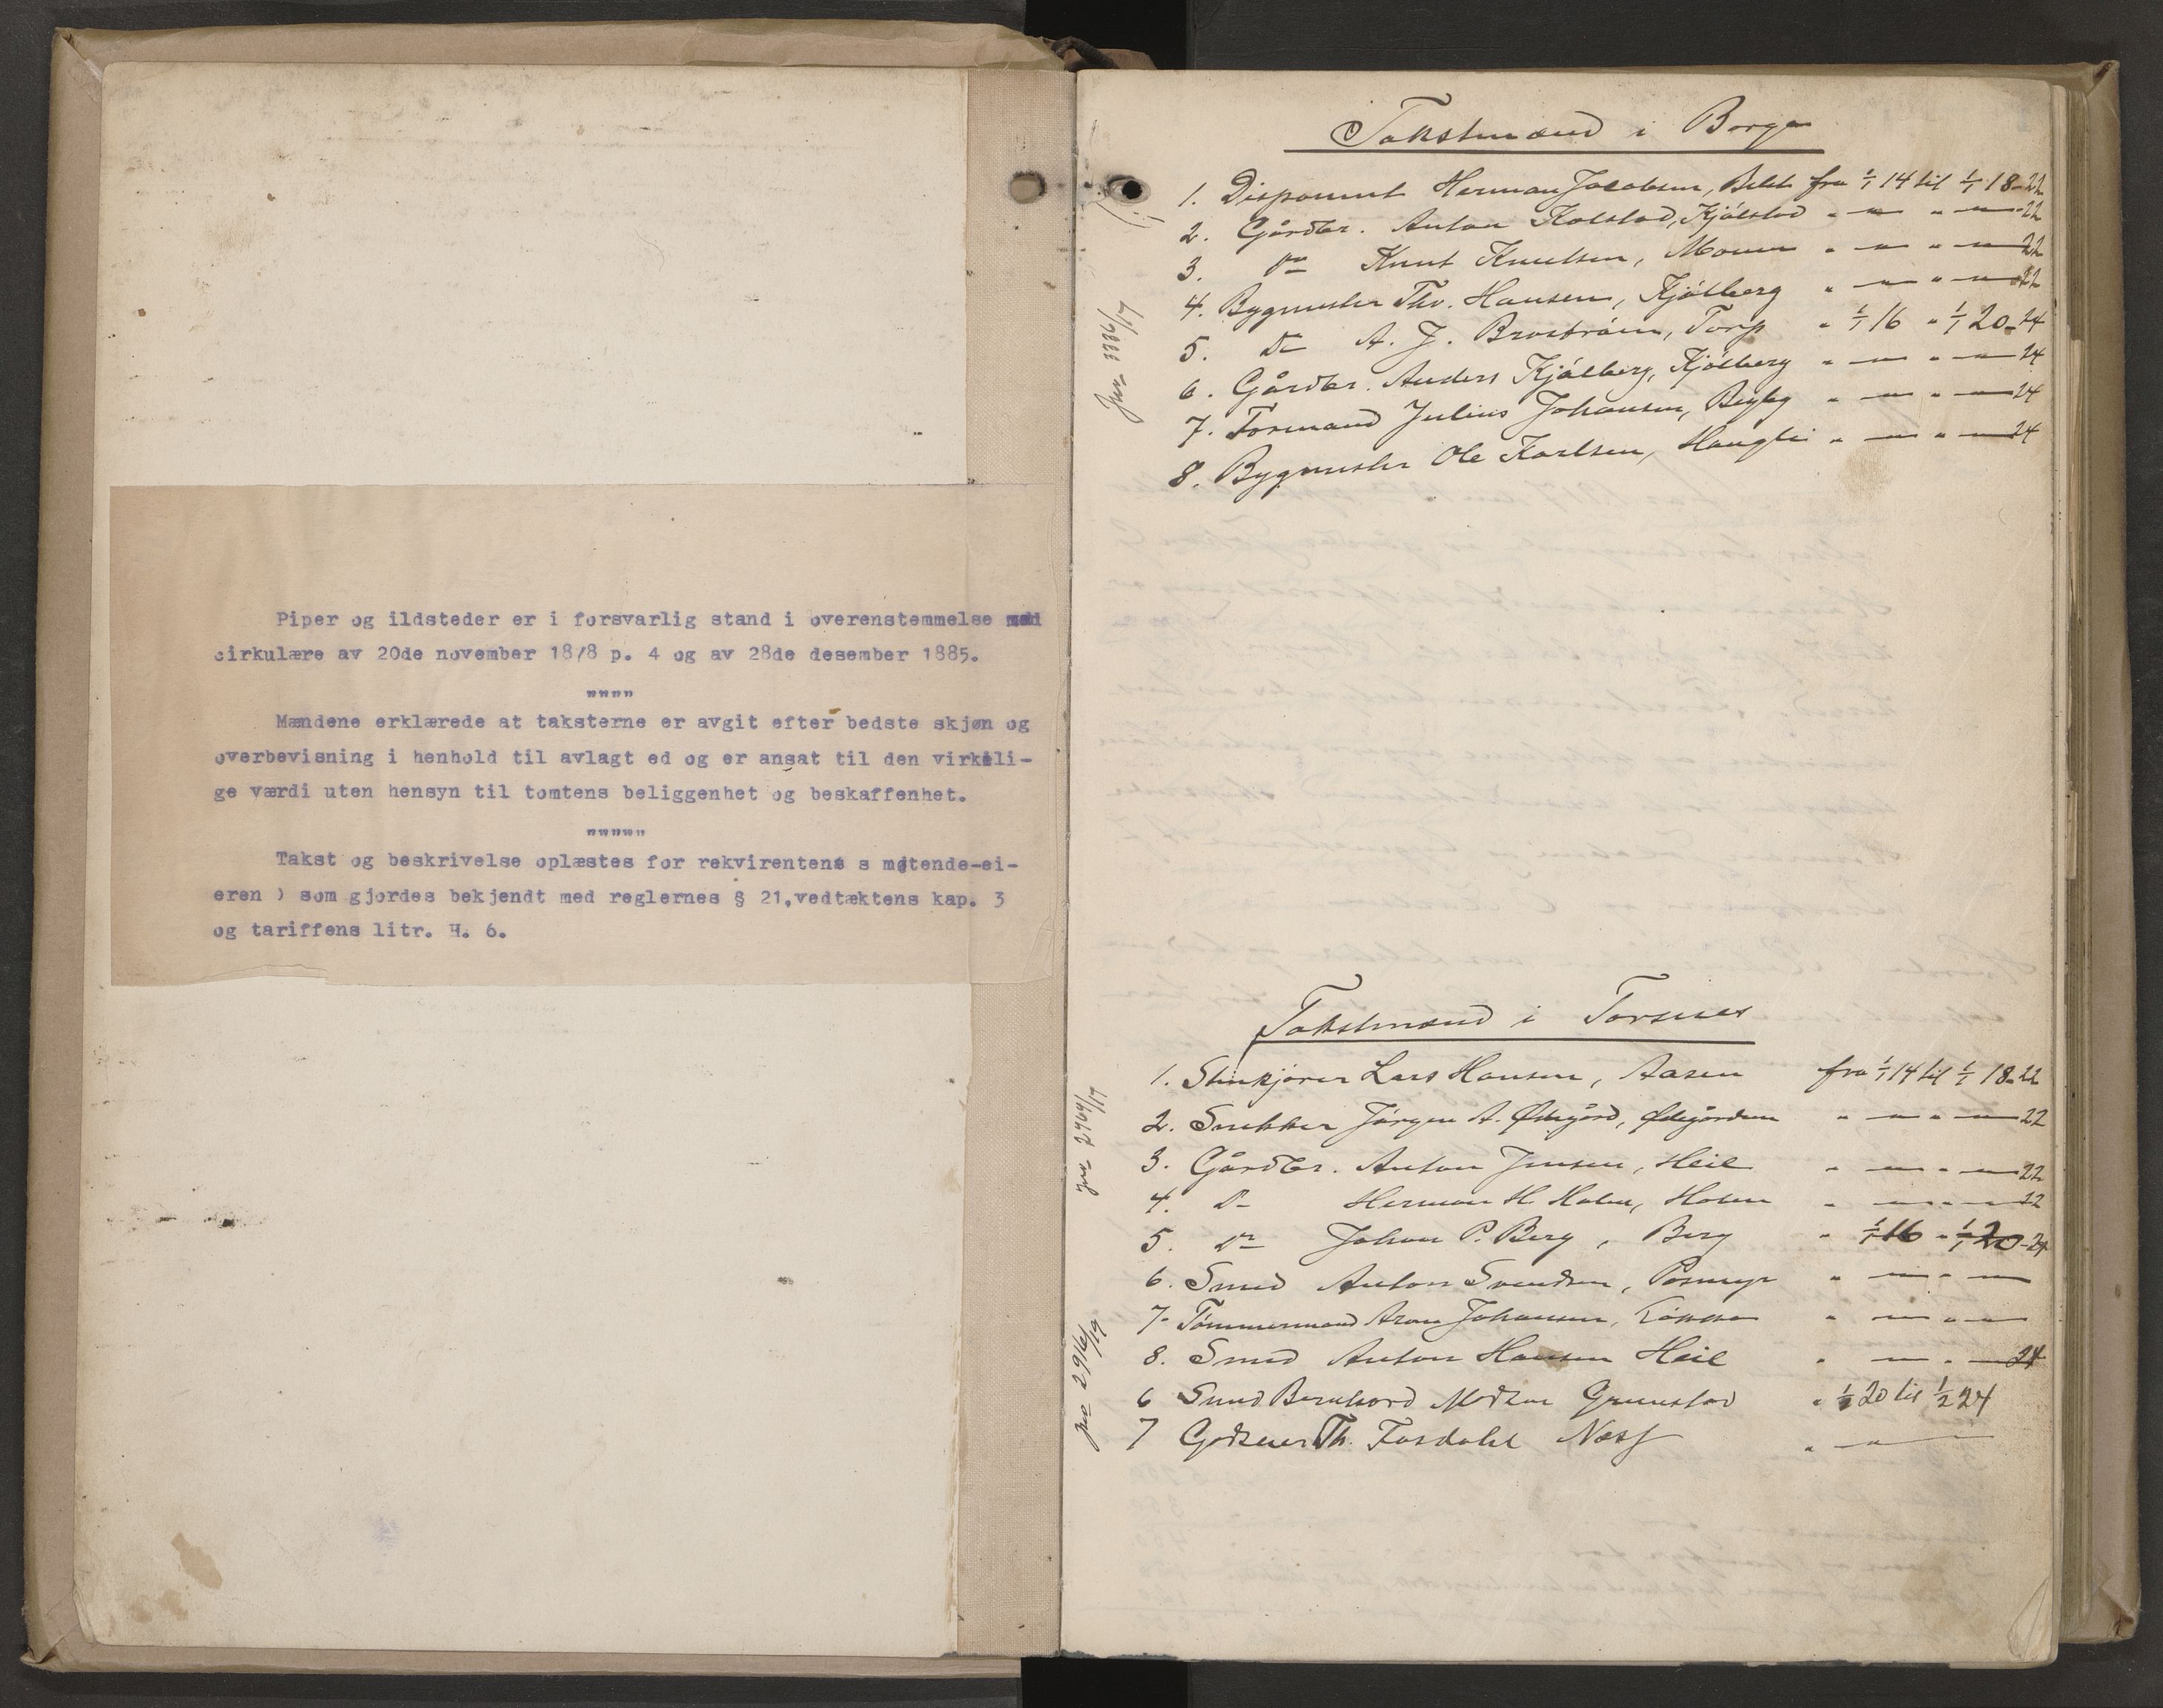 Piper og ildsteder er i forsvarlig stand i overenstemmelse med
cirkulære av 20de november 1878 p. 4 og av 28de desember 1885.
""""
Mændene erklærede at taksterne er avgit efter bedste skjøn og
overbevisning i henhold til avlagt ed og er ansat til den virkeli-
ge værdi uten hensyn til tomtens beliggenhet og beskaffenhet.
"""""
Takst og beskrivelse oplæstes for rekvirentens s møtende-ei-
eren ) som gjordes bekjendt med reglernes § 21,vedtæktens kap. 3
og tariffens litr. H. 6.
Takstmænd i Borge
1. Disponent Herman Jacobsen, fra 1/1 14 til 1/1 18-22
2. Gårdbr. Anton Kolstad, Kjølstad " — " — " — 22
3. Do Knut Knutsen, Moum " — " — " — 22
4. Bygmester Thv. Hansen, Kjølberg " — " — " — 22
5. Do A. J. Brostrøm, Torp " 1/1 16 " 1/1 20-24
6. Gårdbr. Anders Kjølberg, Kjølberg " — " — " — 24
7. Formand Julius Johansen, Begby " — " — " — 24
8. Bygmester Ole Karlsen, Haugli " — " — " — 24
Jnr 3336/17
Takstmænd i Torsnes
1. Lars Hansen, Aasen fra 1/1 14 til 1/1 18-22
2. Snekker Jørgen A. Ødegård, Ødegården " — " — " — 22
3. Gårdbr. Anton Jensen, Heie " — " — " — 22
4. Do Herman H. Holm, Holm " — " — " — 22
5. Do Johan P. Berg, Berg " 1/1 16 " 1/1 20-24
6. Smed Anton Svendsen, " — " — " —
7. Tømmermand Aron Johansen, " — " — " —
8. Smed Anton Hansen Heie " — " — 24
6 Smed Bernhard Grimstad " 1/2 20 til 1/2 24
7 Godseier Th. Fosdahl Næss " — " —
Jnr 2969/17
Jnr 2916/19